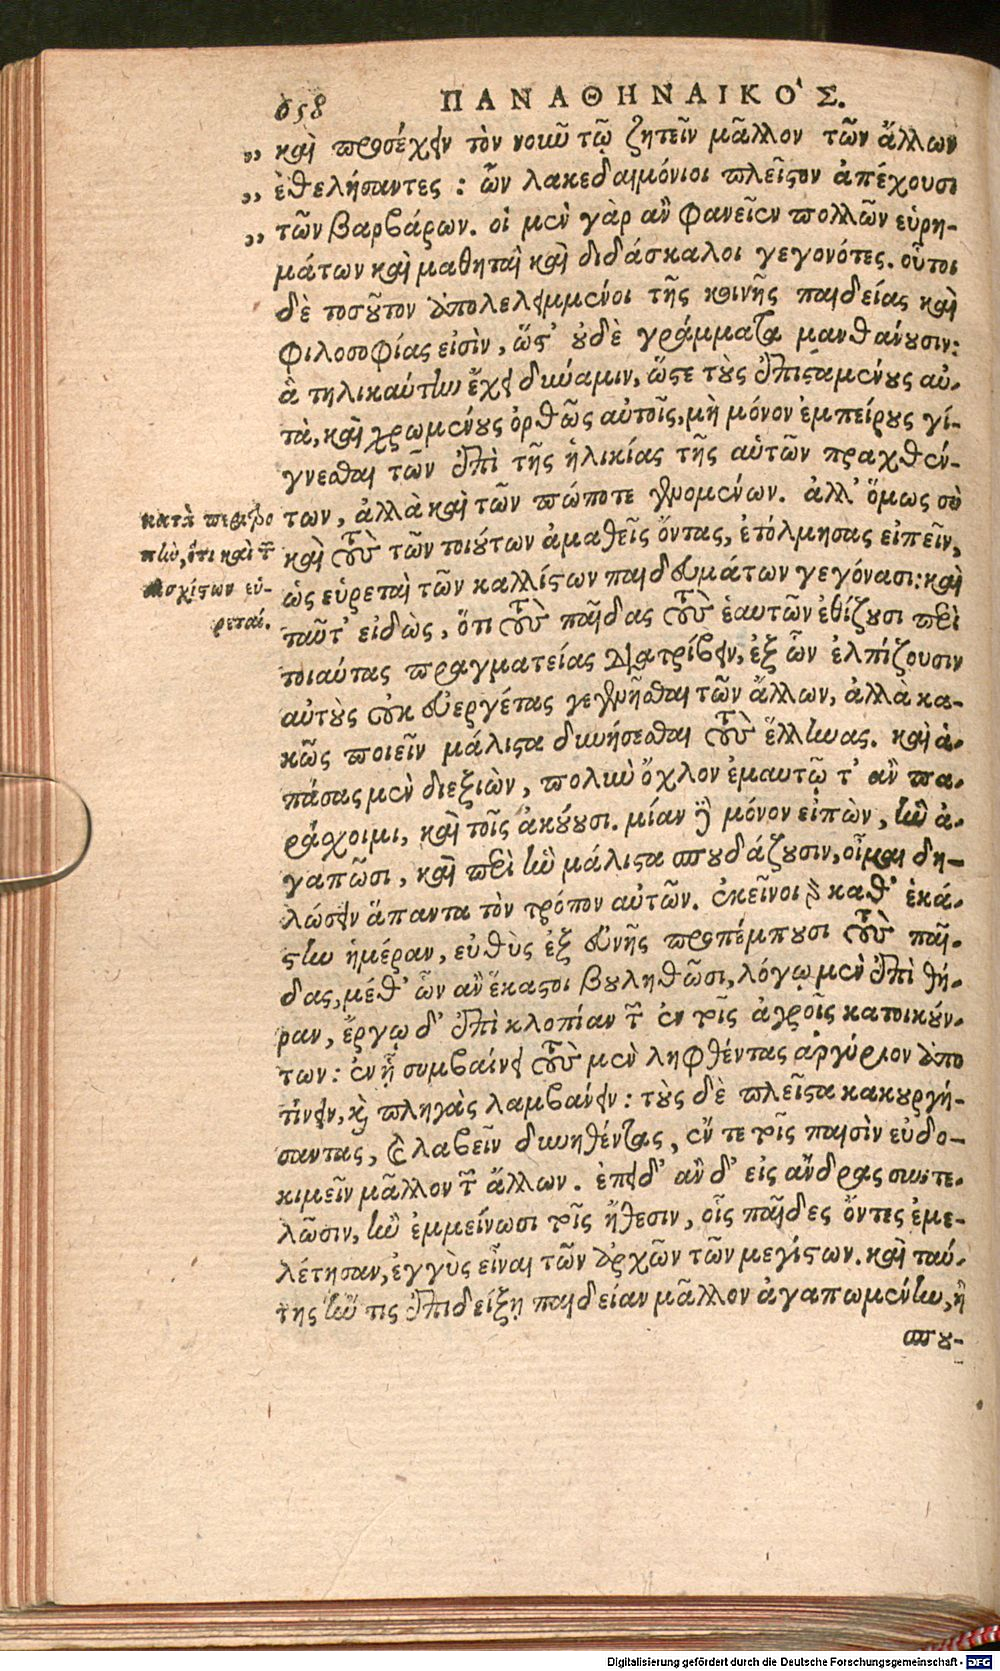 658 ΠΑΝΑΘΗΝΑΙΚΟ'Σ.
„ καὶ προσέχειν τὸν νοῦν τῷ ζητεῖν μᾶλλον τῶν ἄλλων
„ ἐθελήσαντες : ὧν λακεδαιμόνιοι πλεῖστον ἀπέχουσι
„ τῶν βαρβάρων. οἱ μὲν γὰρ ἂν φανεῖεν πολλῶν εὑρη-
μάτων καὶ μαθηταὶ καὶ διδάσκαλοι γεγονότες. οὗτοι
δὲ τοσοῦτον ἀπολελειμμένοι τῆς κοινῆς παιδείας καὶ
φιλοσοφίας εἰσὶν, ὥστ' οὐδὲ γράμματα μανθάνουσιν:
ἃ τηλικαύτην ἔχει δύναμιν, ὥστε τοὺς ἐπισταμένους αὐ-
τὰ, καὶ χρωμένους ὀρθῶς αὐτοῖς, μὴ μόνον ἐμπείρους γί-
γνεσθαι τῶν ἐπὶ τῆς ἡλικίας τῆς αὑτῶν πραχθέν-
των, ἀλλὰ καὶ τῶν πώποτε γενομένων. ἀλλ' ὅμως σὺ
καὶ τοὺς τῶν τοιούτων ἀμαθεῖς ὄντας, ἐτόλμησας εἰπεῖν,
ὡς εὑρεταὶ τῶν καλλίστων παιδευμάτων γεγόνασι: καὶ
ταῦτ' εἰδὼς, ὅτι τοὺς παῖδας τοὺς ἑαυτῶν ἐθίζουσι περὶ
τοιαύτας πραγματείας διατρίβειν, ἐξ ὧν ἐλπίζουσιν
αὐτοὺς οὐκ εὐεργέτας γεγενῆσθαι τῶν ἄλλων, ἀλλὰ κα-
κῶς ποιεῖν μάλιστα δυνήσεσθαι τοὺς ἕλληνας. καὶ ἁ-
πάσας μὲν διεξιὼν, πολὺν ὄχλον ἐμαυτῷ τ' ἂν πα-
ράσχοιμι, καὶ τοῖς ἀκούουσι. μίαν δὲ μόνον εἰπὼν, ἣν ἀ-
γαπῶσι, καὶ περὶ ἣν μάλιστα σπουδάζουσιν, οἶμαι δη-
λώσειν ἅπαντα τὸν τρόπον αὐτῶν. ἐκεῖνοι γὰρ καθ' ἑκά-
στην ἡμέραν, εὐθὺς ἐξ εὐνῆς προπέμπουσι τοὺς παῖ-
δας, μέθ' ὧν ἂν ἕκαστοι βουληθῶσι, λόγῳ μὲν ἐπὶ θή-
ραν, ἔργῳ δ' ἐπὶ κλοπίαν τῶν ἐν τοῖς ἀγροῖς κατοικούν-
των: ἐν ᾗ συμβαίνει τοὺς μὲν ληφθέντας ἀργύριον ἀπο
τίνειν, καὶ πληγὰς λαμβάνειν: τοὺς δὲ πλεῖστα κακουργή-
σαντας, καὶ λαβεῖν δυνηθέντας, ἔν τε τοῖς παισὶν εὐδο-
κιμεῖν μᾶλλον τῶν ἄλλων. ἐπειδ' ἂν δ' εἰς ἄνδρας συντε-
λῶσιν, ἢν ἐμμείνωσι τοῖς ἤθεσιν, οἷς παῖδες ὄντες ἐμε-
λέτησαν, ἐγγὺς εἶναι τῶν ἀρχῶν τῶν μεγίστων. καὶ ταύ-
της ἤν τις ἐπιδείξῃ παιδείαν μᾶλλον ἀγαπωμένην, ἢ
σπου-
ὅτι καὶ τῶν
αἰσχίστων εὑ-
ρεταί.
Digitalisierung gefördert durch die Deutsche Forschungsgemeinschaft - DFG